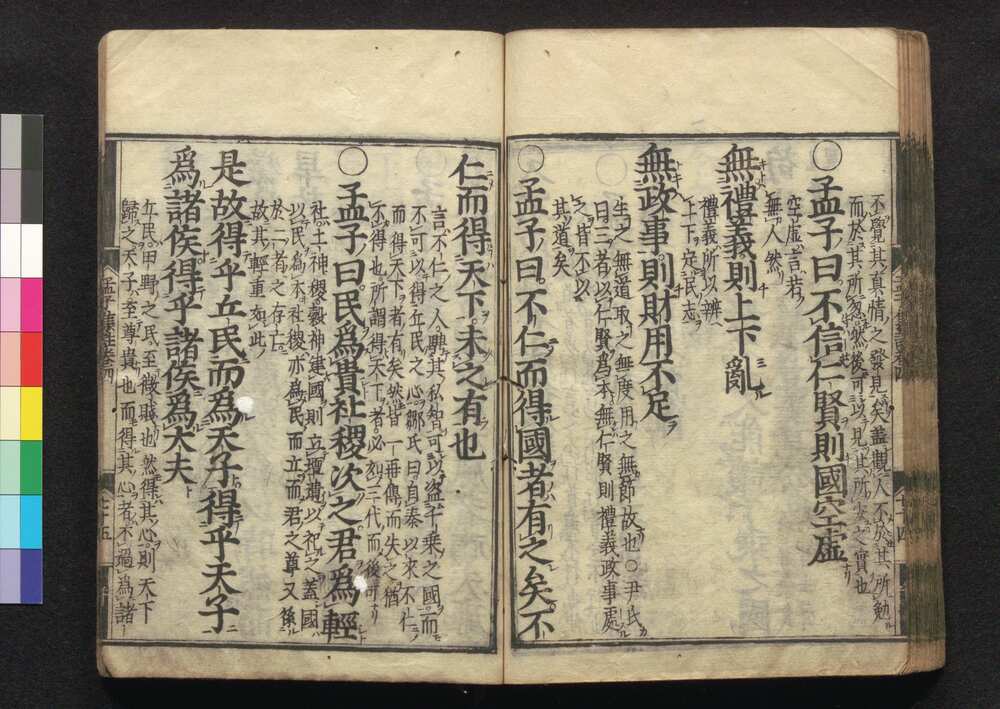 不覺其真情之發見矣蓋觀人不於其所勉
而於其所忽然後可以見其所安之實也
〇孟子曰不信仁賢則國空虛
空虛言若
無人然
無禮義則上下亂
禮義所以辨
上下定民志
無政事則財用不足
生之無道取之無度用之無節故也〇尹氏
曰三者以仁賢為本無仁賢則禮義政事處
之皆不以
其道矣
〇孟子曰不仁而得國者有之矣不
仁而得天下未之有也
言不仁之人騁其私智可以盜千乘之國而
不可以得丘民之心鄒氏曰自秦以來不仁
而得天下者有矣然皆一再傳而失之猶
不得也所謂得天下者必如三代而後可
〇孟子曰民爲貴社稷次之君爲輕
社土神稷穀神建國則立壇壝以祀之蓋國
以民為本社稷亦為民而立而君之尊又係
於二者之存亡
故其輕重如此
是故得乎丘民而爲天子得乎天子
爲諸侯得乎諸侯爲大夫
丘民田野之民至微賤也然得其心則天下
歸之天子至尊貴也而得其心者不過為諸